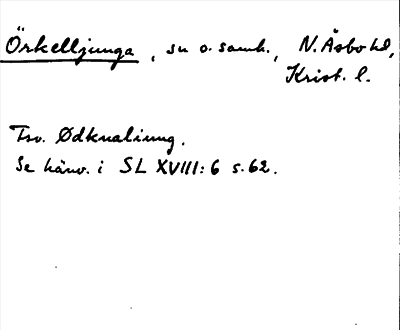 Örkelljunga, sn o. samh., N. Åsbo hd,
Krist. l.
Tsv. Ødknaliung.
Se hänv. i SL XVIII:6 s. 62.